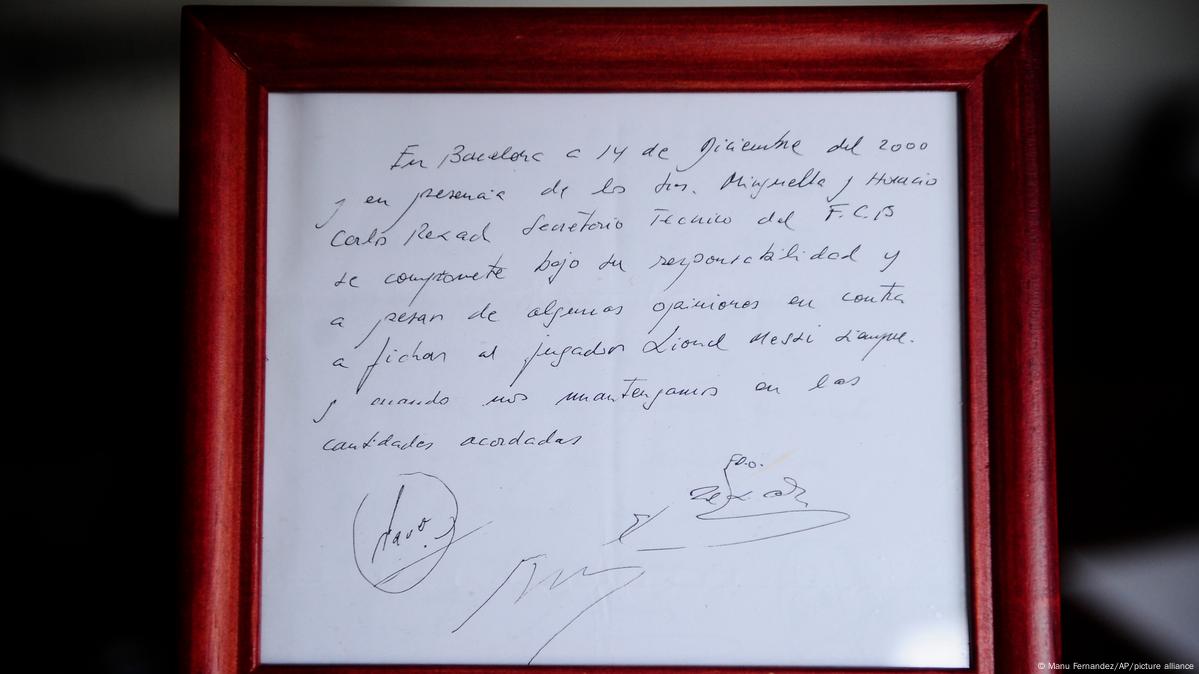 En Barcelona a 14 de Diciembre del 2000
y en presencia de los Srs. Minguella y Horacio
Carlos Rexach Secretario Técnico del F.C.B
se compromete bajo su responsabilidad y
a pesar de algunas opiniones en contra
a fichar al jugador Lionel Messi siempre.
y cuando nos mantengamos en las
cantidades acordadas
FDO.
Rexach
© Manu Fernandez/AP/picture alliance